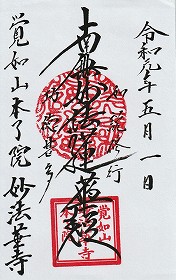 令和元年五月一日
如説修行
南無妙法蓮華経
覚如山本了院 妙法華寺
覚如山